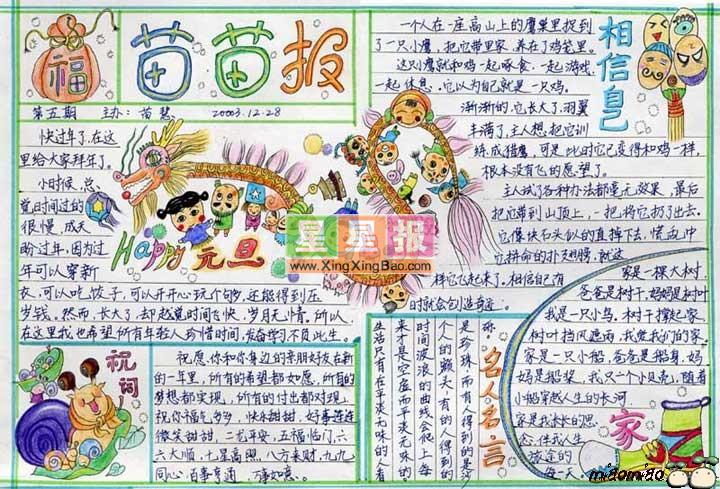 福
苗苗报
第五期 主办:苗慧 20003.12.28
快过年了,在这
里给大家拜年了。
小时候,总
觉时间过的
很慢,成天
盼过年,因为过
年可以穿新
衣,可以吃饺子,可以开开心玩个够,还能得到压
岁钱。然而,长大了,却越觉时间飞快,岁月无情。所以,
在这里我也希望所有年轻人珍惜时间,发奋学习不负此生。
Happy 元旦
星星报
www.XingXingBao.com
相信自己
一个人在一座高山上的鹰巢里捉到
了一只小鹰,把它带回家,养在了鸡笼里。
这只鹰就和鸡一起啄食,一起游戏,
一起休息,它以为自己就是一只鸡。
渐渐的,它长大了,羽翼
丰满了,主人想把它训
练成猎鹰,可是,此时它已变得和鸡一样,
根本没有飞的愿望了。
主人试了各种办法都毫无效果,最后
把它带到山顶上,一把将它扔了出去。
它像块石头似的直掉下去,慌乱中
它拼命的扑打翅膀,就这
样它飞起来了。相信自己有
时就会创造奇迹。
祝词
祝愿你和你身边的亲朋好友在新
的一年里,所有的希望都如愿,所有的
梦想都实现,所有的付出都对现。
祝你福气多多,快乐甜甜,好事连连
微笑甜甜,一二花平安,五福临门,六
六大顺,七星高照,八方来财,九九
同心,百事亨通,万事如意。
名人名言
你。
是珍珠,而有人得到的是沙
个人的额头,有的人得到的
时间波浪的曲线会爬上每
来才是空虚而平淡无味的。
生活只有在平淡无味的人看
家
家是一棵大树,
爸爸是树干,妈妈是树枝
我是一只小鸟,树干撑起家
树叶挡风遮雨,我觉我们的家。
家是一只小船,爸爸是船身,妈
妈是船桨,我只一个小贝壳,随着
小船穿越人生的长河
家是我永长的思
念,伴我人生
旅途的
每一天
miaomiao